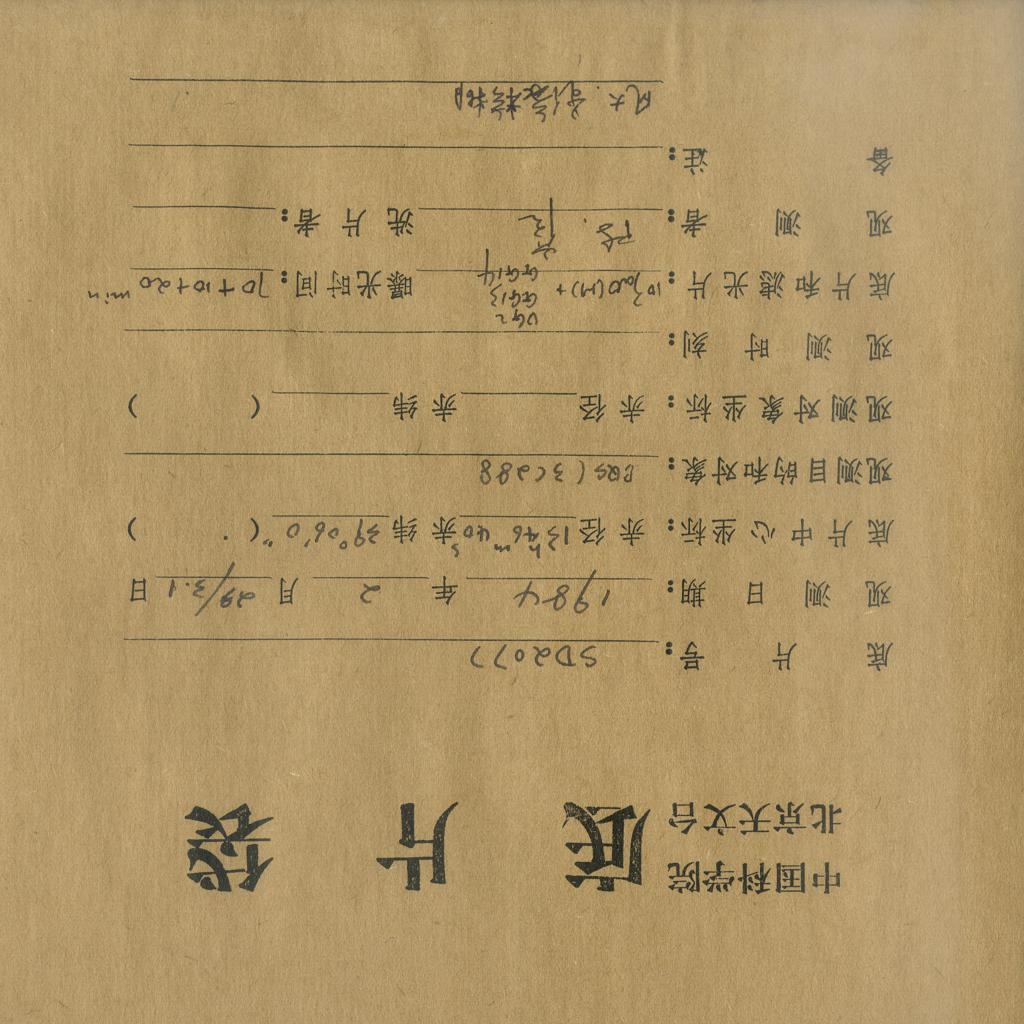 中国科学院
北京天文台
底片袋
底片号: SD2077
观测日期: 1984年 2月 29/3.1日
底片中心坐标: 赤径 13h46m40s 赤纬 39°06′0″ ( )
观测目的和对象: (3C288
观测对象坐标: 赤径 赤纬 ( )
观测时刻:
底片和滤光片: UG2 GG13 GG14 曝光时间: 70+10+20 min
观测者: 洗片者:
备注:
风大.